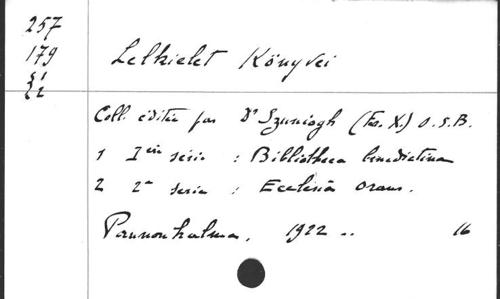 257
179
§1
§2
Lelkielet Könyvei
Coll. éditée par Dr Szuniogh (Fr. X.) O.S.B.
1 Ière série : Bibliotheca benedictina
2 2e serie : Ecclesia Orans.
Pannonhalma, 1922 .. 16